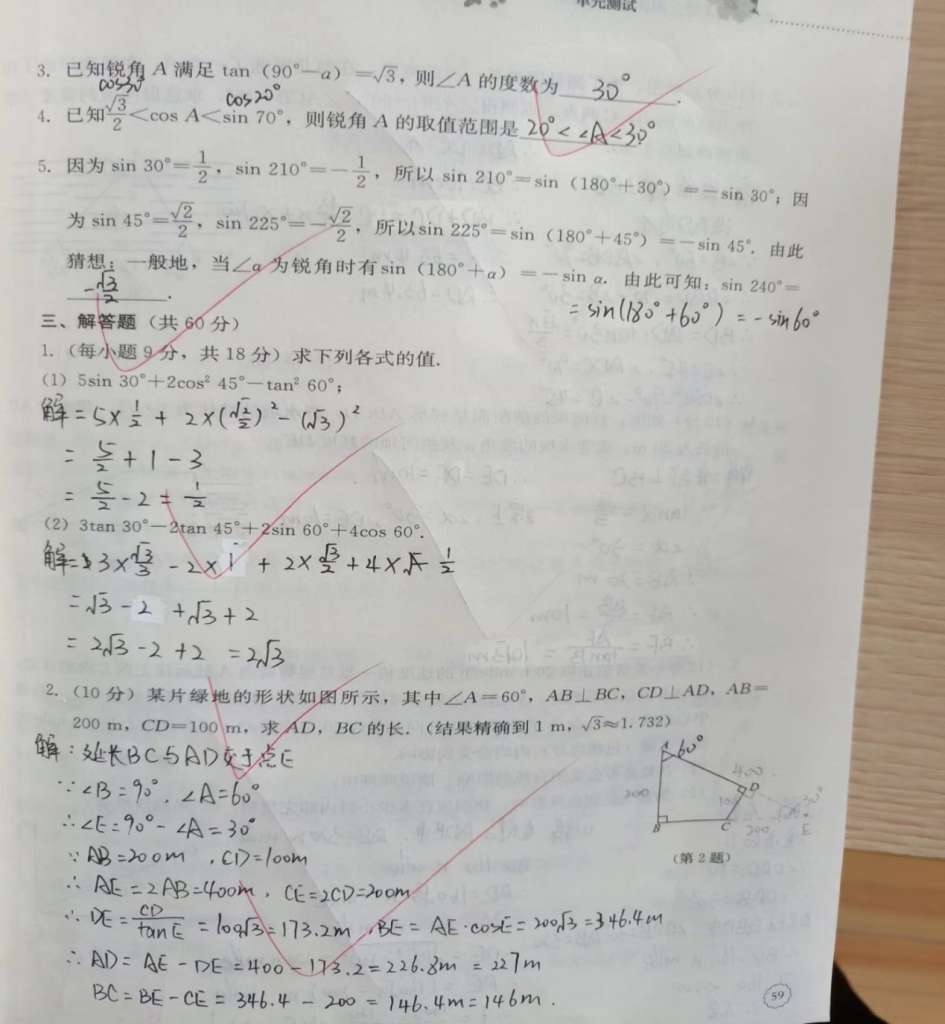 单元测试
3. 已知锐角 A 满足 tan (90°－α) ＝√3, 则∠A 的度数为 30°.
cos30° cos20°
4. 已知√3/2＜cos A＜sin 70°, 则锐角 A 的取值范围是 20°<∠A<30°
5. 因为 sin 30°＝1/2, sin 210°＝－1/2, 所以 sin 210°＝sin (180°＋30°) ＝－sin 30°; 因
为 sin 45°＝√2/2, sin 225°＝－√2/2, 所以 sin 225°＝sin (180°＋45°) ＝－sin 45°. 由此
猜想: 一般地, 当∠α 为锐角时有 sin (180°＋α) ＝－sin α. 由此可知: sin 240°＝
-√3/2.
= sin(180°+60°) = -sin60°
三、解答题 (共 60 分)
1. (每小题 9 分, 共 18 分) 求下列各式的值.
(1) 5sin 30°＋2cos² 45°－tan² 60°;
解= 5×1/2 + 2×(√2/2)² - (√3)²
= 5/2 + 1 - 3
= 5/2 - 2 = 1/2
(2) 3tan 30°－2tan 45°＋2sin 60°＋4cos 60°.
解= 3×√3/3 - 2×1 + 2×√3/2 + 4× 1/2
= √3 - 2 + √3 + 2
= 2√3 - 2 + 2 = 2√3
2. (10 分) 某片绿地的形状如图所示, 其中∠A＝60°, AB⊥BC, CD⊥AD, AB＝
200 m, CD＝100 m, 求 AD, BC 的长. (结果精确到 1 m, √3≈1.732)
解: 延长BC与AD交于点E
∵∠B=90°, ∠A=60°
∴∠E=90°-∠A=30°
∵AB=200m, CD=100m
∴AE=2AB=400m, CE=2CD=200m
∴DE=CD/tanE=100√3=173.2m, BE=AE·cosE=200√3=346.4m
∴AD=AE-DE=400-173.2=226.8m=227m
BC=BE-CE=346.4-200=146.4m=146m.
A 60°
400
200
D
100
30°
B
C
200
E
(第 2 题)
59